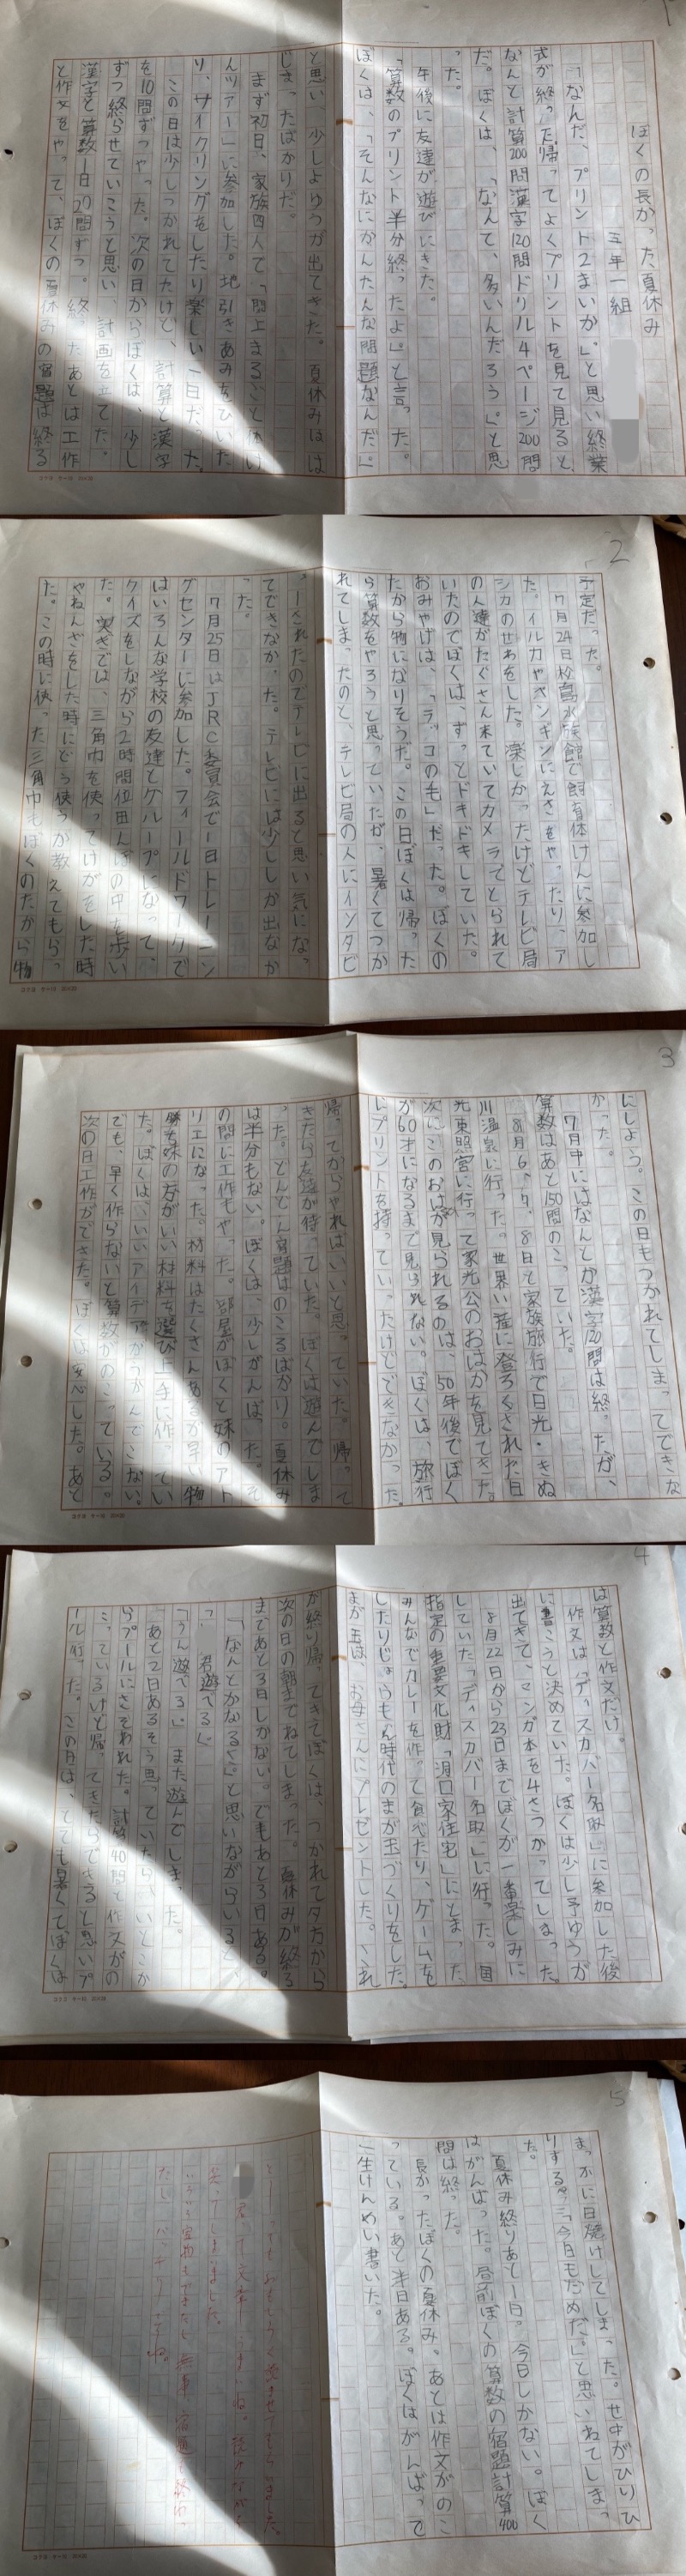 1
ぼくの長かった夏休み
三年一組
「なんだ、プリント2まいか。」と思い終業
式が終って帰ってよくプリントを見て見ると、
なんと計算200問漢字120問ドリル4ページ200問
だ。ぼくは、「なんて、多いんだろう。」と思
った。
午後に友達が遊びにきた。
「算数のプリント半分終ったよ。」と言った。
ぼくは、「そんなにかんたんな問題なんだ。」
と思い、少しよゆうが出てきた。夏休みはは
じまったばかりだ。
まず初日、家族四人で「閖上まるごと体け
んツアー」に参加した。地引きあみをひいた
り、サイクリングをしたり楽しい一日だった。
この日は少しつかれてたけど、計算と漢字
を10問ずつやった。次の日からぼくは、少し
ずつ終らせていこうと思い、計画を立てた。
漢字と算数一日20問ずつ。終ったあとは工作
と作文をやって、ぼくの夏休みの宿題は終る
2
予定だった。
7月24日松島水族館で飼育体けんに参加し
た。イルカやペンギンにえさをやったり、ア
シカのせわをした。楽しかったけどテレビ局
の人達がたくさん来ていてカメラでとられて
いたのでぼくは、ずっとドキドキしていた。
おみやげは、「ラッコの毛」だった。ぼくの
たから物になりそうだ。この日ぼくは帰った
ら算数をやろうと思っていたが、暑くてつか
れてしまったのと、テレビ局の人にインタビ
ューされたのでテレビに出ると思い気になっ
てできなかった。テレビには少ししか出なか
った。
7月25日はJRC委員会で一日トレーニン
グセンターに参加した。フィールドワークで
はいろんな学校の友達とグループになって、
クイズをしながら2時間位田んぼの中を歩い
た。実ぎでは、三角巾を使ってけがをした時
やねんざをした時にどう使うか教えてもらっ
た。この時に使った三角巾もぼくのたから物
3
にしよう。この日もつかれてしまってできな
かった。
7月中にはなんとか漢字120問は終ったが、
算数はあと150問のこっていた。
8月6、7、8日と家族旅行で日光・きぬ
川温泉に行った。世界い産に登ろくされた日
光東照宮に行って家光公のおはかを見てきた。
次にこのおはかが見られるのは、50年後でぼく
が60才になるまで見られない。ぼくは、旅行
にプリントを持っていったけどできなかった。
帰ってからやればいいと思っていた。帰って
きたら友達が待っていた。ぼくは遊んでしま
った。どんどん宿題はのこるばかり。夏休み
は半分もない。ぼくは、少しがんばった。そ
の間に工作もやった。部屋がぼくと妹のアト
リエになった。材料はたくさんあるが早い物
勝ち妹の方がいい材料を選び上手に作ってい
た。ぼくは、いいアイデアがうかんでこない。
でも、早く作らないと算数がのこっている。
次の日工作ができた。ぼくは安心した。あと
4
は算数と作文だけ。
作文は「ディスカバー名取」に参加した後
に書こうと決めていた。ぼくは少し予ゆうが
出てきて、マンガ本を4さつかってしまった。
8月22日から23日までぼくが一番楽しみに
していた「ディスカバー名取」に行った。国
指定の重要文化財「洞口家住宅」にとまった。
みんなでカレーを作って食べたり、ゲームを
したりじょうもん時代のまが玉づくりをした。
まが玉は、お母さんにプレゼントした。これ
が終り帰ってきてぼくは、つかれて夕方から
次の日の朝までねてしまった。夏休みが終る
まであと3日しかない。でもあと3日ある。
「なんとかなるぐと思いながらいると、
「 君遊べる。」
「うん遊べる。」また遊んでしまった。
あと2日あるそう思っていたら、いとこか
らプールにさそわれた。計算40問と作文がの
こっているけど帰ってきたらできると思いプ
ール行った。この日は、とても暑くてぼくは
5
まっ赤に日焼けしてしまった。せ中がひりひ
りする…。「今日もだめだ。」と思いねてしまっ
た。
夏休み終りあと一日。今日しかない。ぼく
はがんばった。昼前ぼくの算数の宿題計算400
問は終った。
長かったぼくの夏休み。あとは作文がのこ
っている。あと半日ある。ぼくはがんばって
一生けんめい書いた。
とーってもおもしろく読ませてもらいました。
君って文章うまいね。読みながら
笑ってしまいました。
いろいろ宝物もできたし無事宿題も終わっ
たし、バッチリですね。